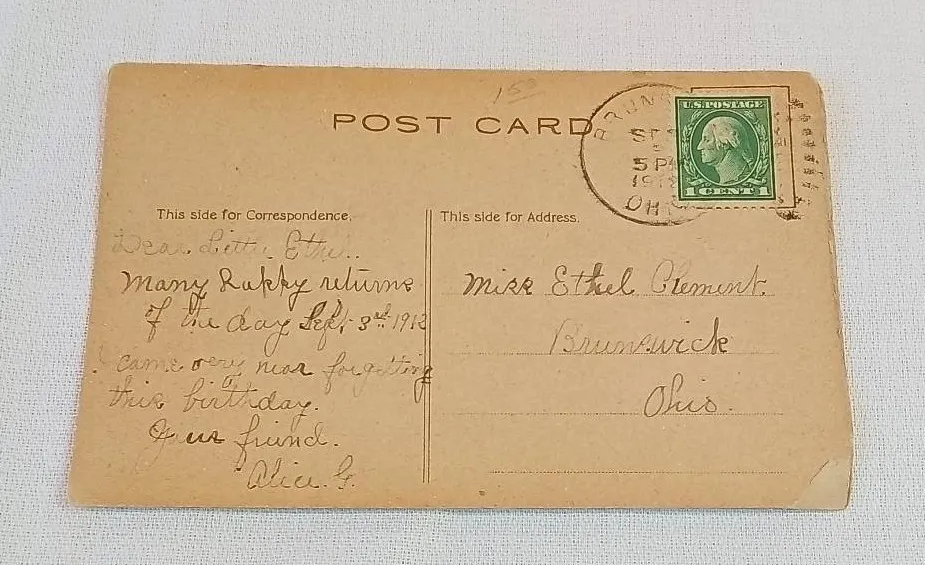 1 50
POST CARD
BRUNS
SEP
5 P
191
OHI
U.S. POSTAGE
1 CENT 1
This side for Correspondence.
This side for Address.
Dear Little Ethel.
Many happy returns
of the day Sept 3rd. 1912
I came very near forgetting
this birthday.
Your friend.
Alice. G.
Miss Ethel Clement.
Brunswick
Ohio.